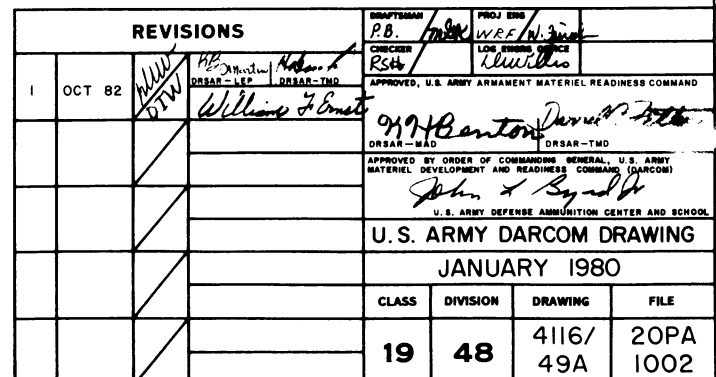 REVISIONS
1 OCT 82
DIW
DRSAR-LEP DRSAR-TMD
William F Ernst
DRAFTSMAN PROJ ENG
P.B. WRF
CHECKER LOG ENGRG OFFICE
RSH DWillis
APPROVED, U.S. ARMY ARMAMENT MATERIEL READINESS COMMAND
Benton
DRSAR-MAD DRSAR-TMD
APPROVED BY ORDER OF COMMANDING GENERAL, U.S. ARMY
MATERIEL DEVELOPMENT AND READINESS COMMAND (DARCOM)
John L Byrd Jr
U.S. ARMY DEFENSE AMMUNITION CENTER AND SCHOOL
U.S. ARMY DARCOM DRAWING
JANUARY 1980
CLASS DIVISION DRAWING FILE
19 48 4116/ 20PA
49A 1002